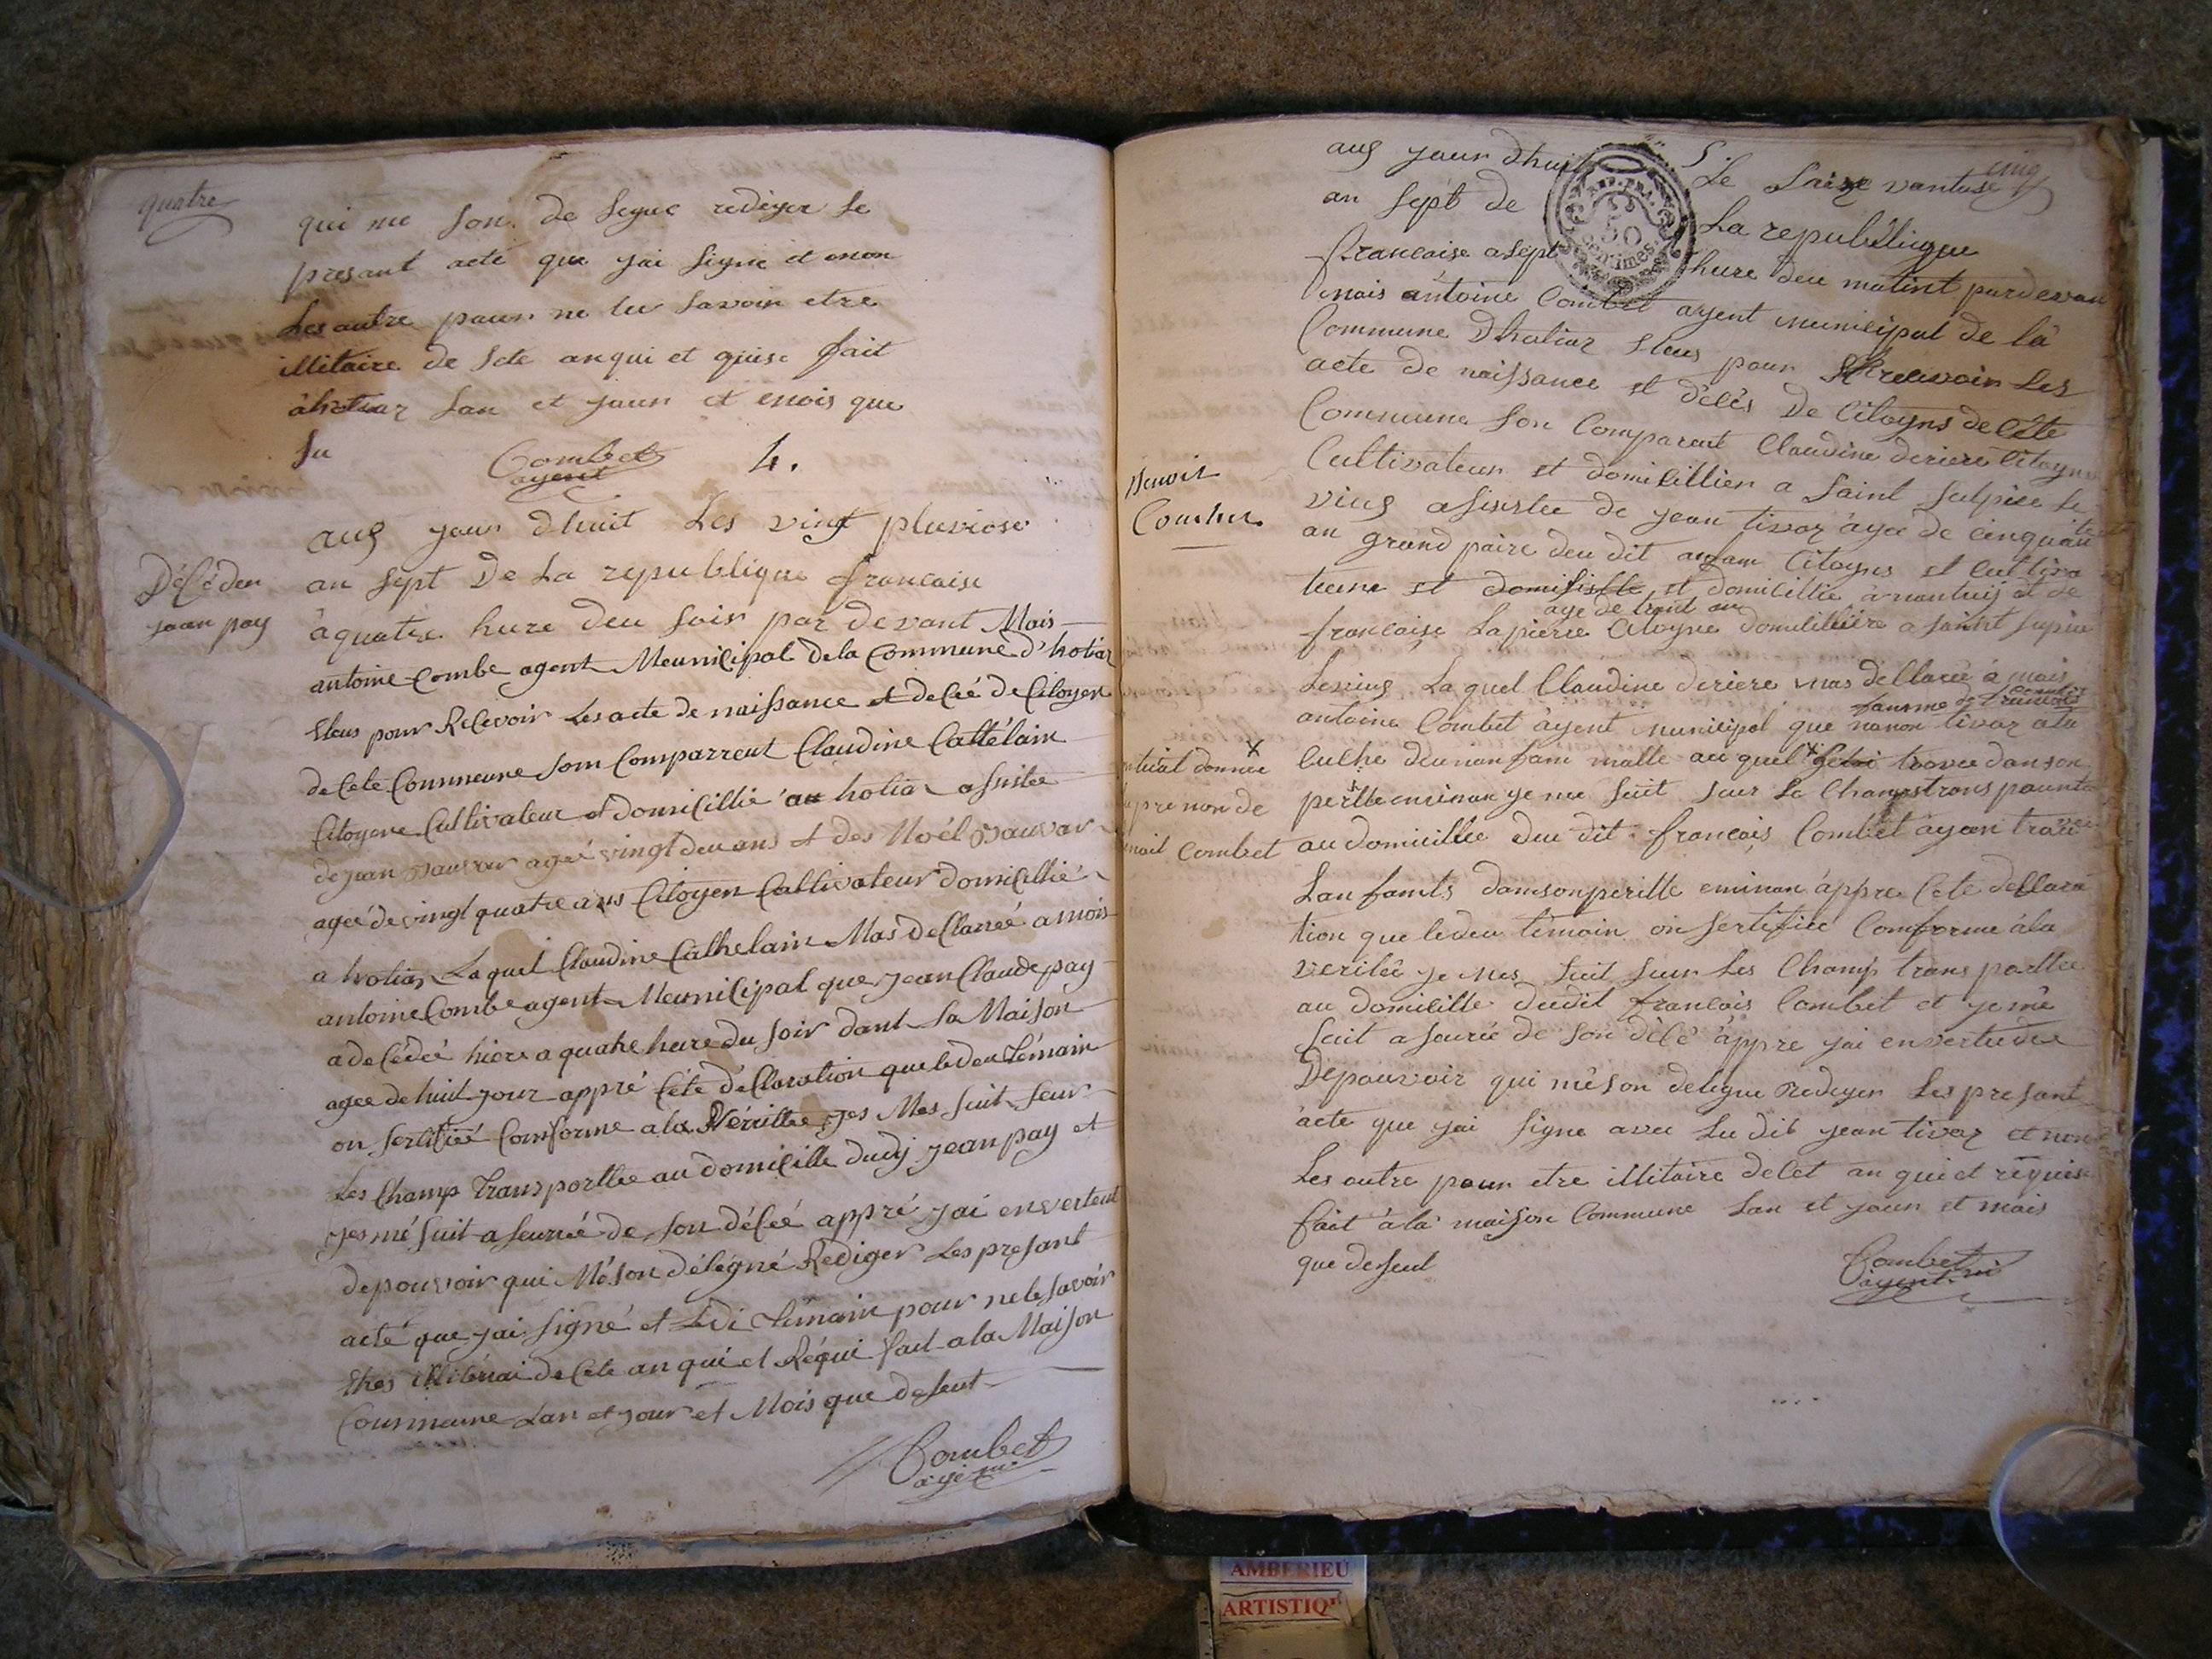 quatre
qui me son de legue rediger le
presant acte que jai signe et non
Les autre pour ne lu savoir etre
illitaire de sete anqui et quise fait
a hotiaz lan et jour et mois que
su
Combet
agent
4.
Décé deu
jean pay
auş jour dhuit Les vingt pluviose
an sept De La republique francaise
à quatre hure deu soir par devant Mois
antoine Combe agent Meunicipal de la Commune d'hotiaz
Eleus pour Recevoir Les acte de naissance et décé de Citoyen
de Cete Commeune Som Comparreut Claudine Cattélain
Citoyene Cultivateur et domicillié au hotiaz asistée
de jean Sauvar ageé vingt deu ans et des Noél Sauvar
ageé de vingt quatre ans Citoyen Cultivateur domicillié
a hotiaz La quel Claudine Cathelain Mas deClareé a mois
antoine Combe agent Meunicipal que jean Claude pay
a deCédeé hiere a quatre heure du soir dant sa Maison
agee de huit jour appré Céte déClaration que le deu témain
on sertifieé Conforme a la Vérritée jes Mes suit seur
Les Champ transporttée au domicille dudi jean pay et
jes mé suit a seurreé de son décé appré jai en verteut
de pouvoir qui Mé son délégné Rediger Les presant
acté que jai signé et Ledi témain pour ne le savoir
de Cete an qui et Réqui fait a la Maison
Coummeune Lan et jour et Mois que deseut
Combet
age mu
5.
cinq
auş jour dhuit Le saize vantose
an sept de La republique
francaise a sept hure deu matint pardevan
mois antoine Combet agent municipal de la
Commune Dhotiaz Eleus pour recevoir Les
acte de naissance et décès De Citoyns de Cete
Commeune son Comparent Claudine deriere Citoyne
Cultivateur et domicillier a saint sulpice le
Benoit
Combet
vieuş asistée de jean tivaz agée de cinquante
an grand paire deu dit anfam Citoyns et cultiva
teure et domisille et domicillié a nantuis et de
age de trent an
françoise Lapierre Citoyne domicilliére a saint supice
Levieuş La quel Claudine deriere mas dellareé à mois
famme de francois Combet
antoine Combet agent municipal que nanon tivaz ala
culhe deunanfam malle au quel trovee danson
x
donnée
le prenon de
Combet
perille eminan ge me suit seur Le Champs transpourte
au domicillee deu dit francois Combet ayan trouvée
Lanfamts damson perille eminan appre Cete dellara
tion que ledeu témoin on sertifiée Comforme ala
verileé je mes suit seur Les Champ transporttée
au domicille deudit francois Combet et je mé
suit a seurée de son décé appre jai en vertudes
De pouvoir qui mé son delegue Rediger Les presant
acte que jai signe avec Le dit jean tivaz et non
Les autre pour etre illitaire de Cet an qui et requise
fait a la maison Commune Lan et jour et mois
que deseut
Combet
agent mi
REP. FRA.
50
centimes
AMBERIEU
ARTISTIQ